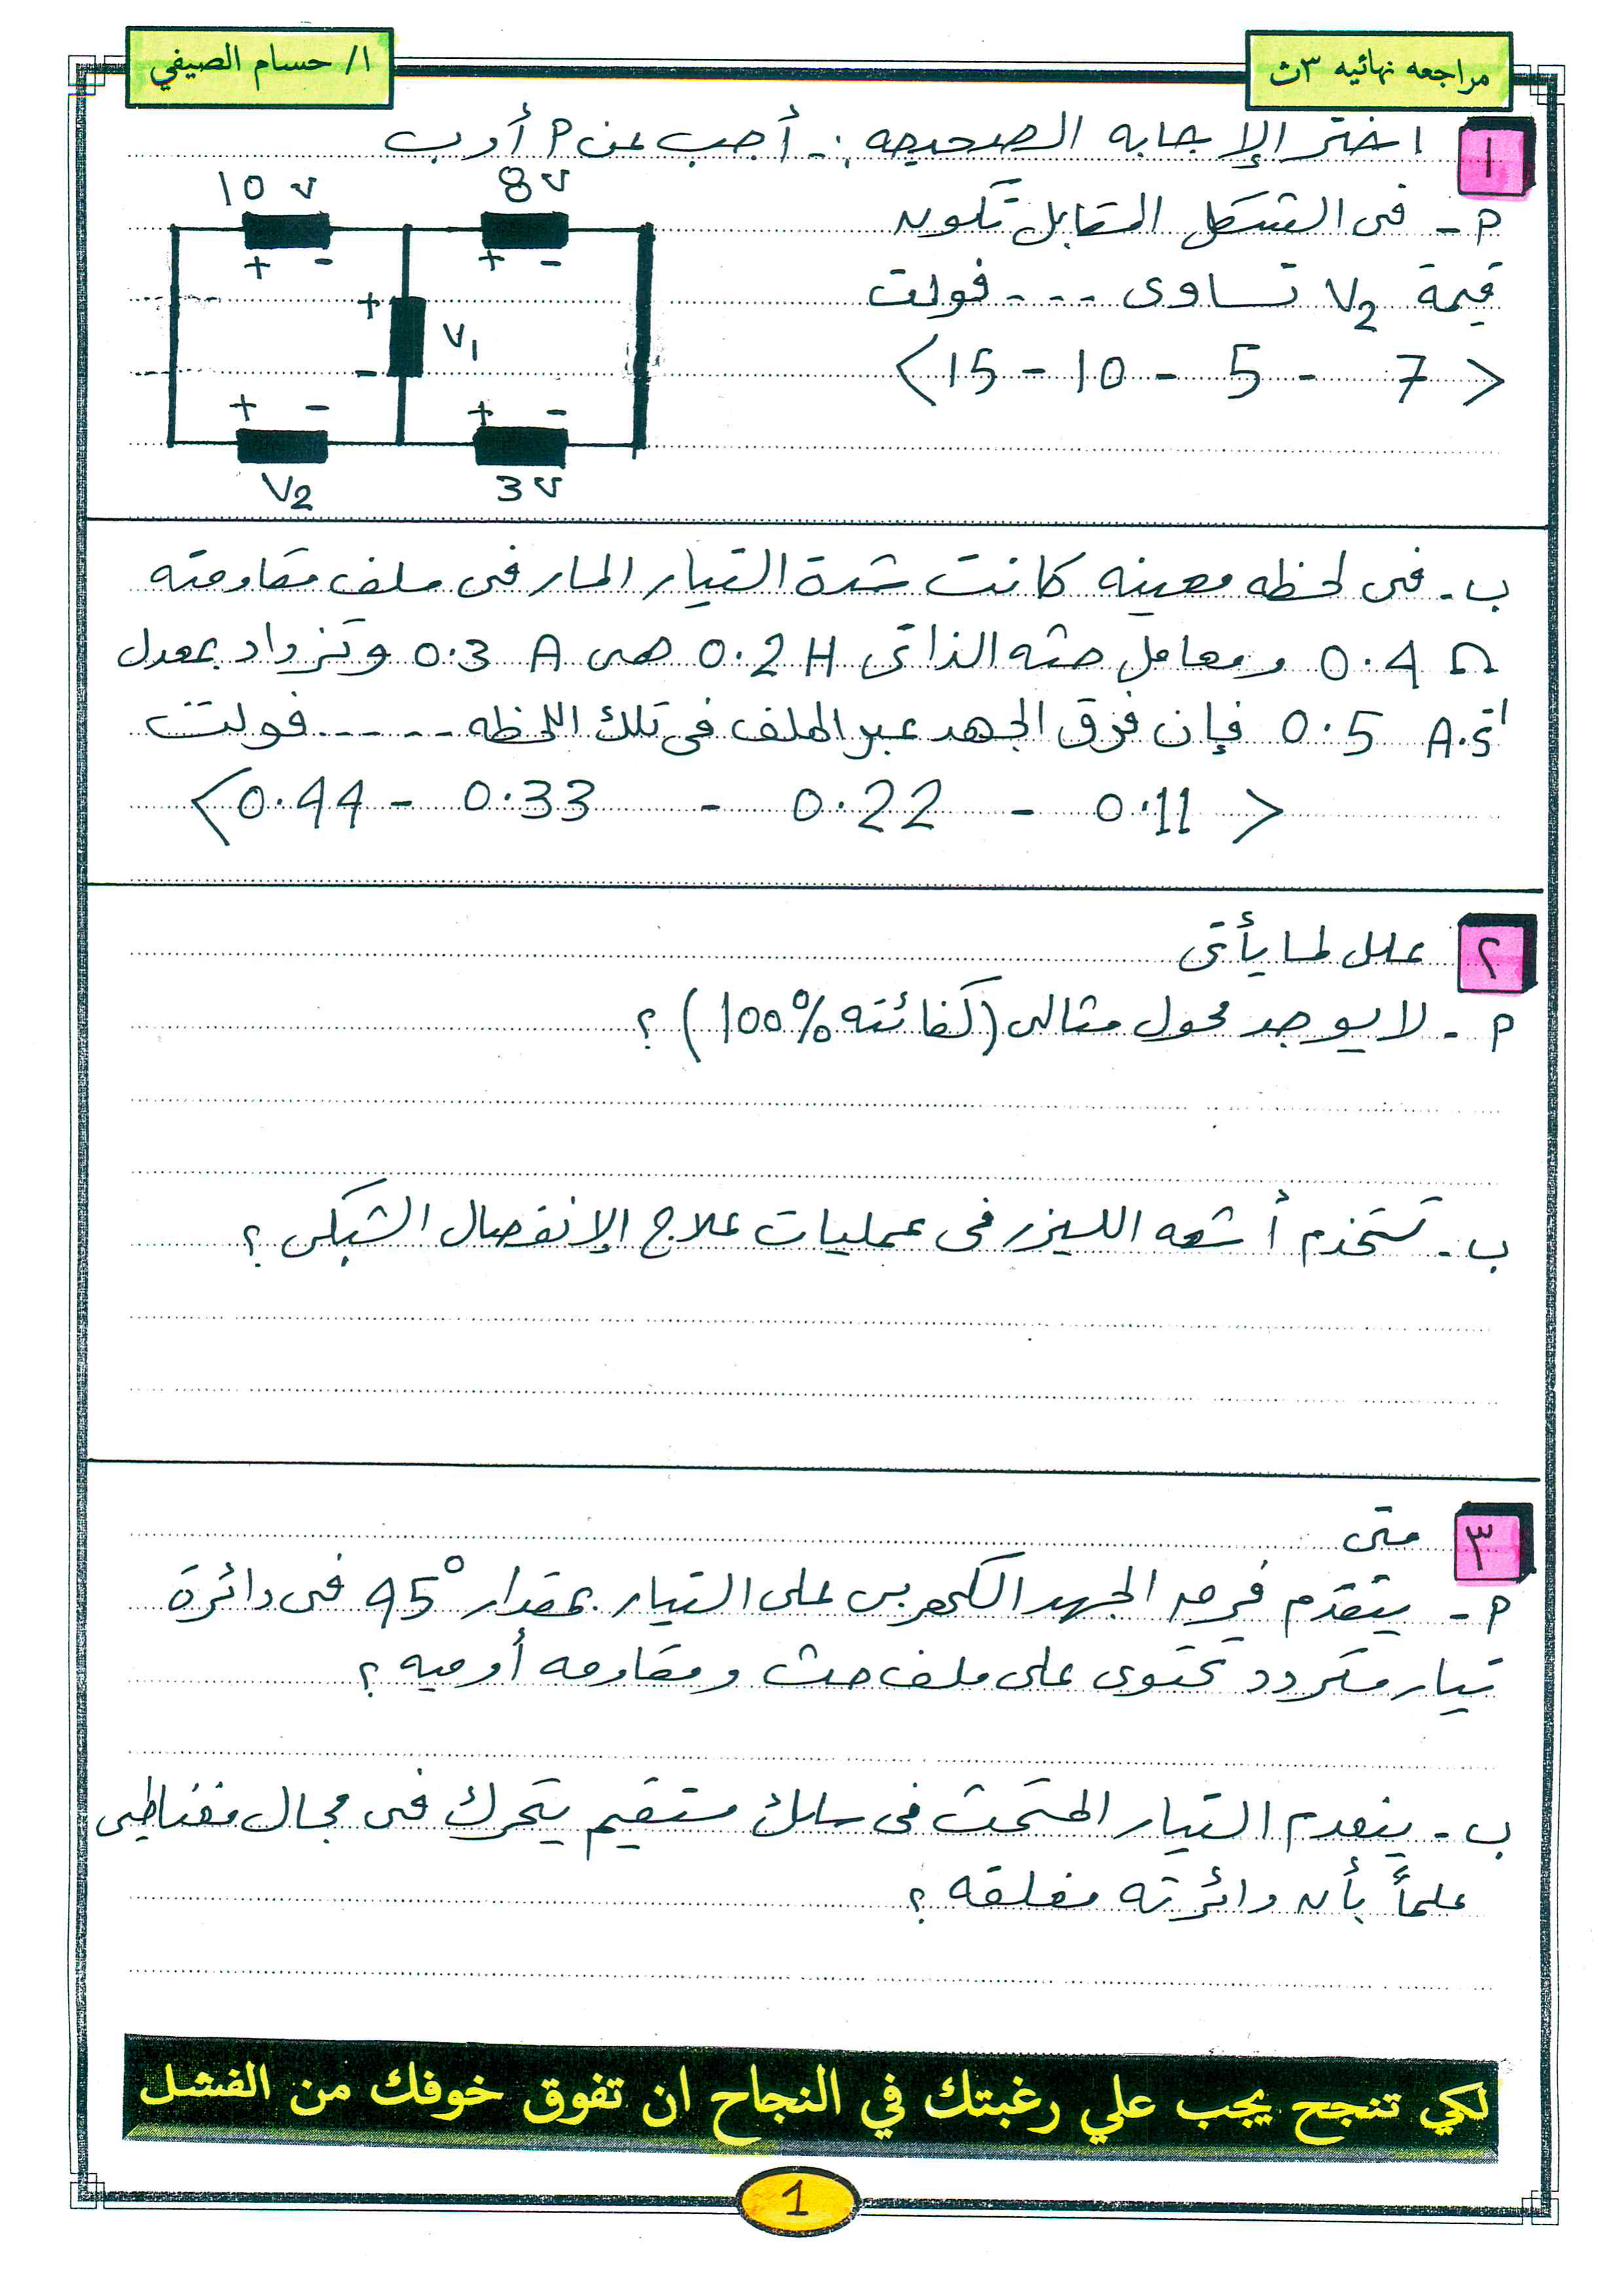 مراجعه نهائيه ٣ث
ا/ حسام الصيفي
١ اختر الإجابه الصحيحه :ـ أجب عن P أو ب
P - فى الشكل المقابل تكون
قيمة V2 تساوى - - - فولت
< 7 - 5 - 10 - 15 >
10 v
8 v
+ -
+ -
+
V1
-
+ -
+ -
V2
3 v
ب - فى لحظه معينه كانت شدة التيار المار فى ملف مقاومته
0.4 Ω ومعامل حثه الذاتى 0.2 H هى 0.3 A وتزداد بمعدل
0.5 A.s⁻¹ فإن فرق الجهد عبر الملف فى تلك اللحظه - - - - - فولت
< 0.11 - 0.22 - 0.33 - 0.44 >
٢ علل لما يأتى
P - لا يوجد محول مثالى (كفائته 100%) ؟
ب - تستخدم أشعه الليزر فى عمليات علاج الإنفصال الشبكى ؟
٣ متى
P - يتقدم فرق الجهد الكهربى على التيار بمقدار 45° فى دائرة
تيار متردد تحتوى على ملف حث ومقاومه أوميه ؟
ب - ينعدم التيار المستحث فى سلك مستقيم يتحرك فى مجال مغناطيسى
علماً بأن دائرته مغلقه ؟
لكي تنجح يجب علي رغبتك في النجاح ان تفوق خوفك من الفشل
1